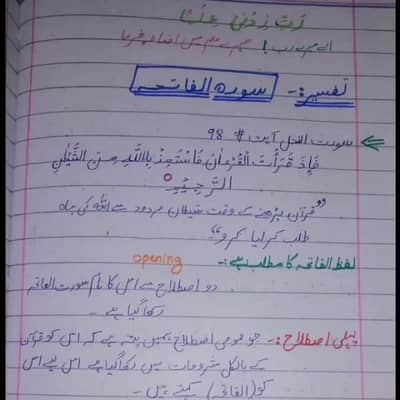 رَبِّ زِدْنِیْ عِلْمًا
اے میرے رب! میرے علم میں اضافہ فرما
تفسیر:- سورہ الفاتحہ
سورت النحل آیت # 98
فَاِذَ قَرَأتَ الْقُرْءانَ فَاسْتَعِذْ بِاللّٰهِ مِنَ الشَّيْطٰنِ
الرَّجِيْمِ
"قرآن پڑھنے کے وقت شیطان مردود سے اللہ کی پناہ
طلب کر لیا کرو"۔
لفظ الفاتحہ کا مطلب ہے:-
opening
دو اصطلاح سے اس کا نام سورت الفاتحہ
رکھا گیا ہے۔
پہلی اصطلاح:- جو عمومی اصطلاح ہمیں پتہ ہے کہ اس کو قرآن
کے بالکل شروعات میں رکھا گیا ہے اس لیے اس
کو (الفاتحہ) کہتے ہیں۔